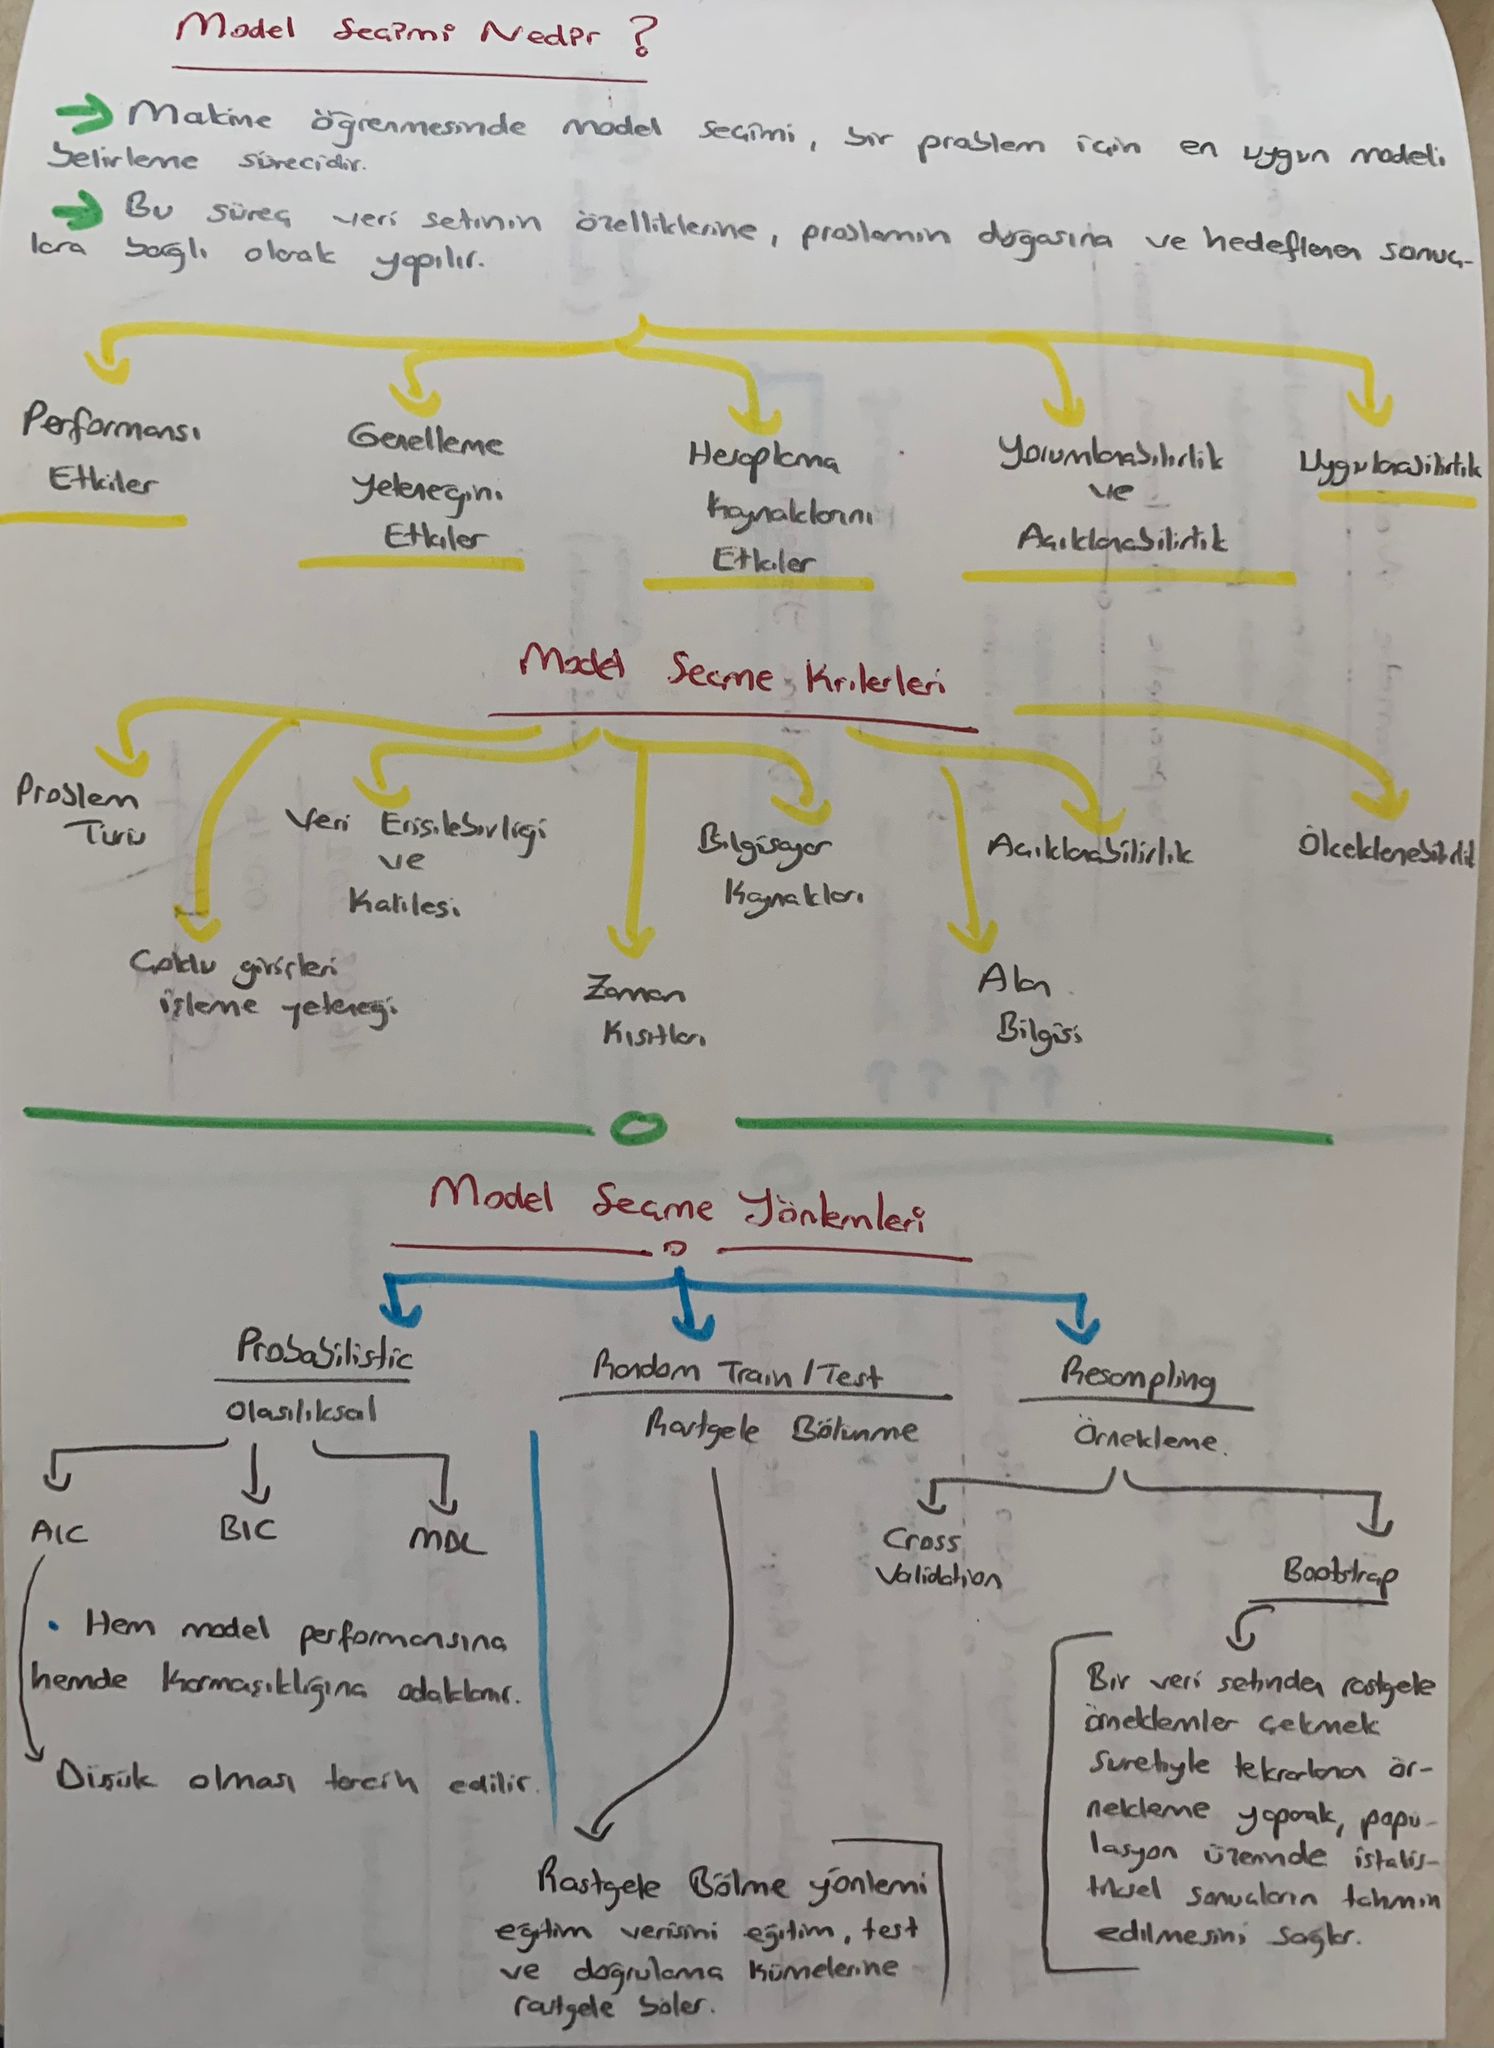 Model Seçimi Nedir ?
Makine öğrenmesinde model seçimi, bir problem için en uygun modeli
belirleme sürecidir.
Bu süreç veri setinin özelliklerine, problemin doğasına ve hedeflenen sonuç-
lara bağlı olarak yapılır.
Performansı
Etkiler
Genelleme
Yeteneğini
Etkiler
Hesaplama
Kaynaklarını
Etkiler
Yorumlanabilirlik
ve
Açıklanabilirlik
Uygulanabilirlik
Model Seçme Kriterleri
Problem
Türü
Çoklu girişleri
işleme yeteneği
Veri Erişilebirliği
ve
Kalitesi
Zaman
Kısıtları
Bilgisayar
Kaynakları
Açıklanabilirlik
Alan
Bilgisi
Model Seçme Yöntemleri
Probabilistic
Olasılıksal
AIC
BIC
MDL
• Hem model performansına
hemde karmaşıklığına odaklanır.
Düşük olması tercih edilir.
Random Train / Test
Rastgele Bölünme
Rastgele Bölme yöntemi
eğitim verisini eğitim, test
ve doğrulama kümelerine
rastgele böler.
Resampling
Örnekleme.
Cross
Validation
Bootstrap
Bir veri setinden rastgele
örneklemler çekmek
suretiyle tekrarlanan ör-
nekleme yaparak, popu-
lasyon üzerinde istatis-
tiksel sonuçların tahmin
edilmesini sağlar.